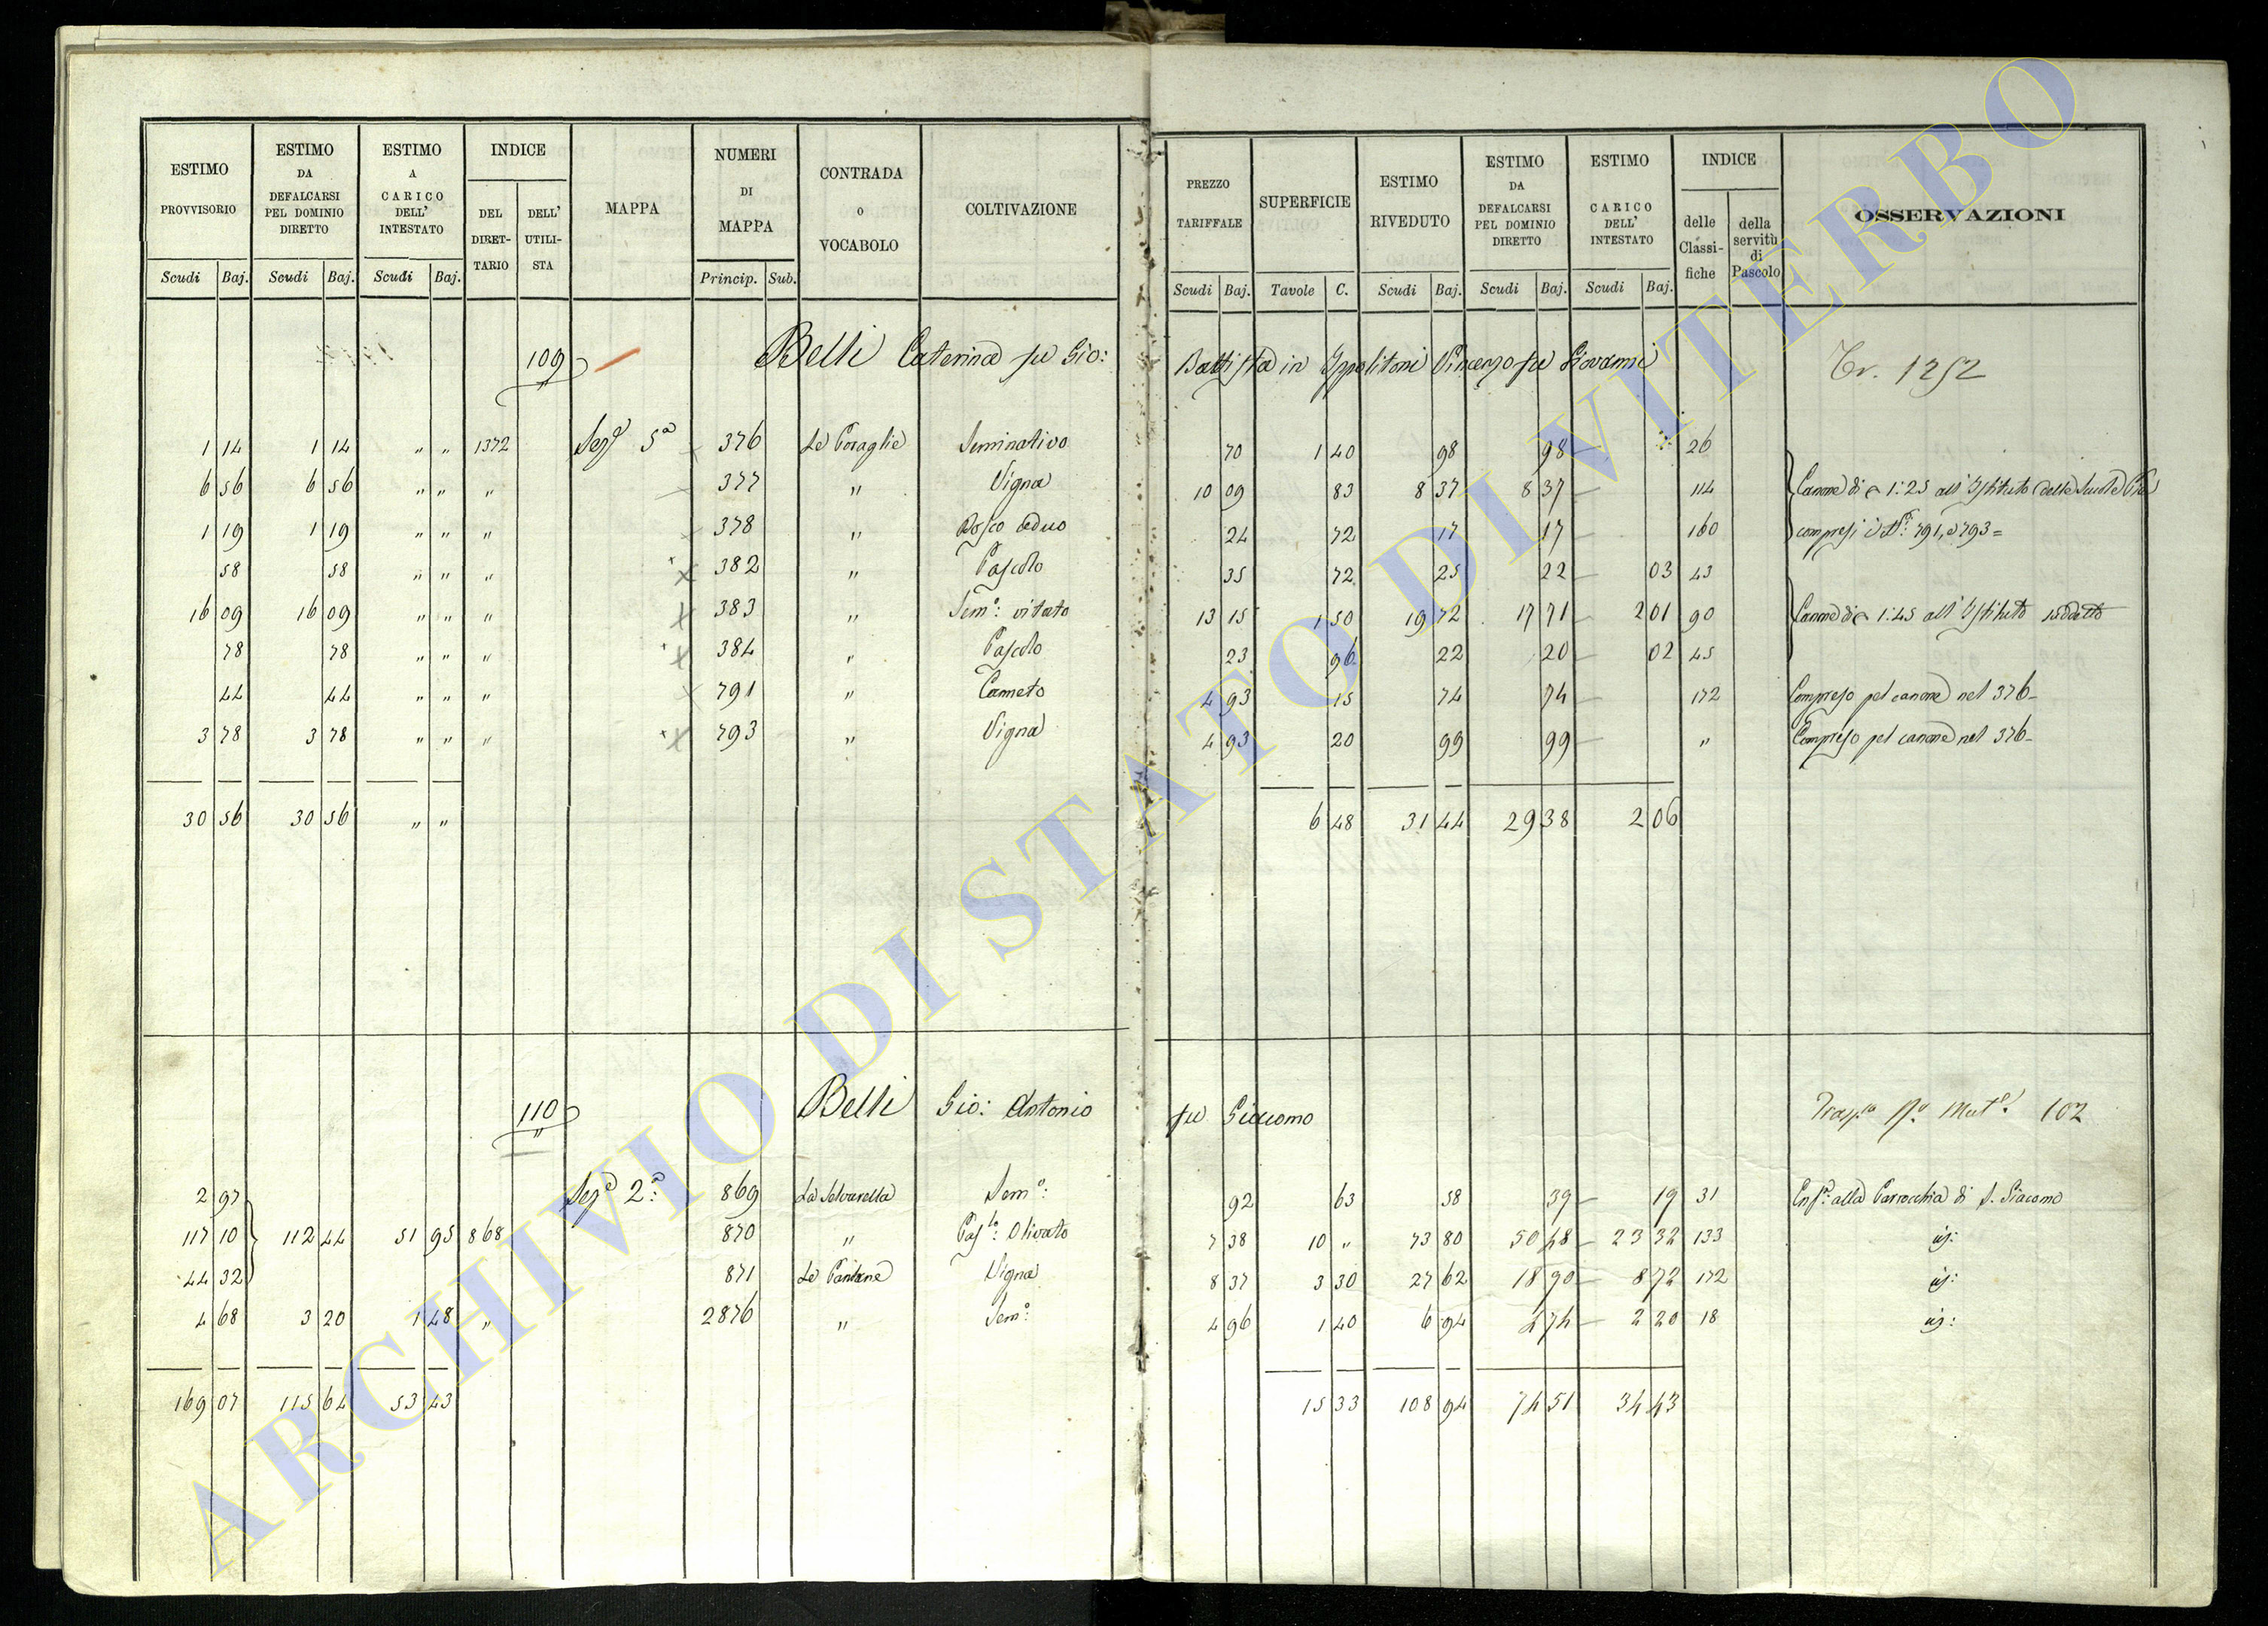 ESTIMO PROVVISORIO | ESTIMO DA DEFALCARSI PEL DOMINIO DIRETTO | ESTIMO A CARICO DELL' INTESTATO | INDICE | MAPPA | NUMERI DI MAPPA | CONTRADA O VOCABOLO | COLTIVAZIONE | PREZZO TARIFFALE | SUPERFICIE | ESTIMO RIVEDUTO | ESTIMO DA DEFALCARSI PEL DOMINIO DIRETTO | ESTIMO A CARICO DELL' INTESTATO | INDICE | OSSERVAZIONI
DEL DIRETTARIO | DELL' UTILISTA | delle Classifiche | della servitù di Pascolo
Scudi | Baj. | Scudi | Baj. | Scudi | Baj. | Princip. | Sub. | Scudi | Baj. | Tavole | C. | Scudi | Baj. | Scudi | Baj. | Scudi | Baj.
109 Belli Caterina fu Gio: Battista in Ippolitoni Vincenzo fu Giovanni Tr. 1252
1 14 | 1 14 | " " | 1372 | Sez.e 5a | 376 | Le Poraglie | Seminativo | 70 | 1 40 | 98 | 98 | " | 26
6 56 | 6 56 | " " | " | 377 | " | Vigna | 10 09 | 83 | 8 37 | 8 37 | 114 | Canone di 1:25 all'Istituto delle Scuole Pie
1 19 | 1 19 | " " | " | 378 | " | Bosco ceduo | 24 | 72 | 17 | 17 | 160 | compresi i N.i 791, e 793 =
58 | 58 | " " | " | 382 | " | Pascolo | 35 | 72 | 25 | 22 | 03 | 43
16 09 | 16 09 | " " | " | 383 | " | Sem.o: vitato | 13 15 | 1 50 | 19 72 | 17 71 | 2 01 | 90 | Canone di 1:45 all'Istituto suddetto
78 | 78 | " " | " | 384 | " | Pascolo | 23 | 96 | 22 | 20 | 02 | 45
44 | 44 | " " | " | 791 | " | Canneto | 4 93 | 15 | 74 | 74 | 172 | Compreso pel canone nel 376 -
3 78 | 3 78 | " " | " | 793 | " | Vigna | 4 93 | 20 | 99 | 99 | " | Compreso pel canone nel 376 -
30 56 | 30 56 | " " | 6 48 | 31 44 | 29 38 | 2 06
110 Belli Gio: Antonio fu Giacomo 102
2 97 | Sez.e 2.a | 869 | La Selvarella | Sem.o: | 92 | 63 | 58 | 39 | 19 | 31 | Enf.a: alla Parrocchia di S. Giacomo
117 10 | 112 44 | 51 95 | 868 | 870 | " | Pas.lo: Olivato | 7 38 | 10 " | 73 80 | 50 48 | 23 32 | 133 | id:
44 32 | 871 | Le Pantane | Vigna | 8 37 | 3 30 | 27 62 | 18 90 | 8 72 | 172 | id:
4 68 | 3 20 | 1 48 | " | 2876 | " | Sem.o: | 4 96 | 1 40 | 6 94 | 4 74 | 2 20 | 18 | id:
169 07 | 115 64 | 53 43 | 15 33 | 108 94 | 74 51 | 34 43
ARCHIVIO DI STATO DI VITERBO